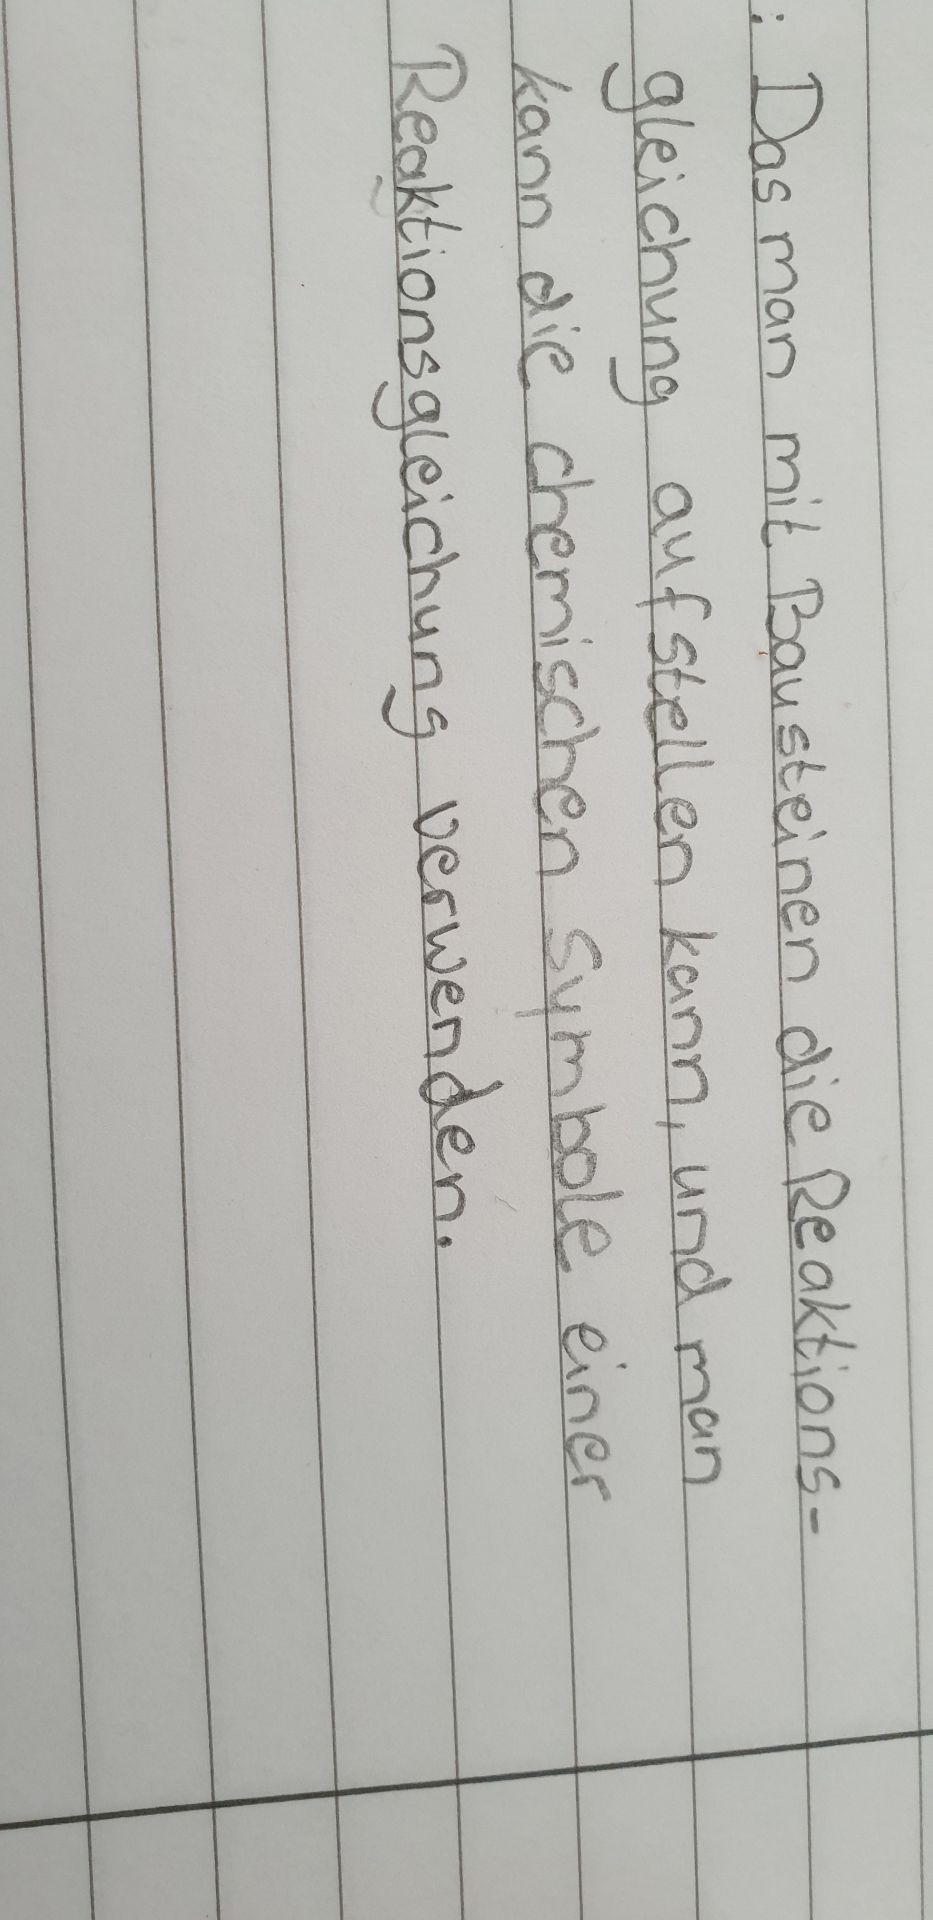 : Das man mit Bausteinen die Reaktions-
gleichung aufstellen kann, und man
kann die chemischen Symbole einer
Reaktionsgleichung verwenden.